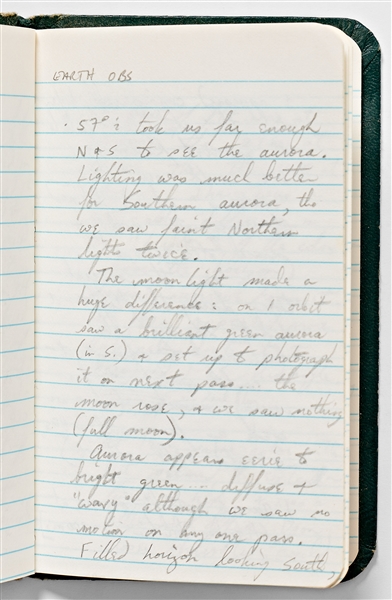 EARTH OBS
· 57° i took us far enough
N & S to see the aurora.
Lighting was much better
for Southern aurora, tho
we saw faint Northern
lights twice.
The moon light made a
huge difference: on 1 orbit
saw a brilliant green aurora
(in S.) & set up to photograph
it on next pass.... the
moon rose, & we saw nothing
(full moon).
Aurora appears eerie to
bright green.... diffuse &
"wavy" although we saw no
motion on any one pass.
Filled horizon looking South,